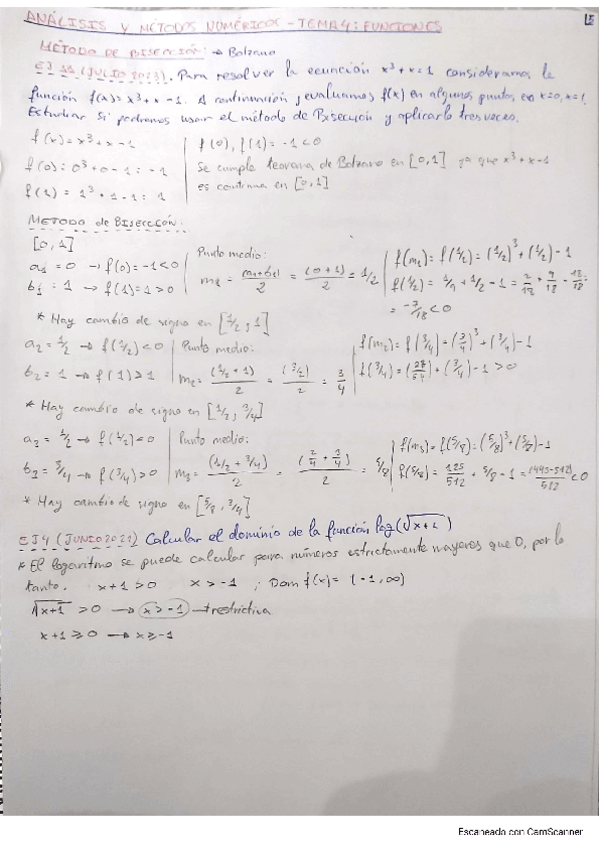 ANÁLISIS Y MÉTODOS NUMÉRICOS - TEMA 4: FUNCIONES
MÉTODO DE BISECCIÓN: → Bolzano
EJ 11 (JULIO 2023). Para resolver la ecuación x³+x=1 consideramos la
función f(x)= x³+x-1. A continuación, evaluamos f(x) en algunos puntos, en x=0, x=1.
Estudiar si podramos usar el método de Bisección y aplicarlo tres veces.
f(x)= x³+x-1 | f(0), f(1) = -1 < 0
f(0): 0³+0-1 = -1 | Se cumple teorema de Bolzano en [0,1] ya que x³+x-1
f(1) = 1³+1-1 = 1 | es continua en [0,1]
METODO de BISECCIÓN:
[0,1]
a₁ = 0 → f(0)=-1<0 | Punto medio: | f(m₁) = f(1/2) = (1/2)³+(1/2)-1
b₁ = 1 → f(1)=1>0 | = (0+1)/2 = 1/2 |
= -7/18 < 0
* Hay cambio de signo en [1/2, 1]
a₂ = 1/2 → f(1/2)<0 | Punto medio: | f(m₂) = f(3/4) = (3/4)³+(3/4)-1
b₂ = 1 → f(1)>1 | m₂ = (1/2+1)/2 = (3/2)/2 = 3/4 | -1 > 0
* Hay cambio de signo en [1/2, 3/4]
a₃ = 1/2 → f(1/2)<0 | Punto medio: | f(m₃) = f(5/8) = (5/8)³+(5/8)-1
b₃ = 3/4 → f(3/4)>0 | m₃ = (1/2+3/4)/2 = (2/4+3/4)/2 = 5/8 | f(5/8) = 125/512 + 5/8 - 1 = <0
* Hay cambio de signo en [5/8, 3/4]
EJ4 (JUNIO 2021) Calcular el dominio de la función log(√x+1)
* El logaritmo se puede calcular para números estrictamente mayores que 0, por lo
tanto. x+1>0 x>-1 ; Dom f(x)= (-1,∞)
√x+1 > 0 → x>-1 → restrictiva
x+1≥0 → x≥-1
Escaneado con CamScanner